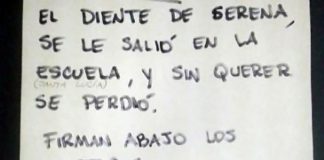 EL DIENTE DE SERENA,
SE LE SALIÓ EN LA
ESCUELA, Y SIN QUERER
(SANTA LUCIA)
SE PERDIÓ.
FIRMAN ABAJO LOS